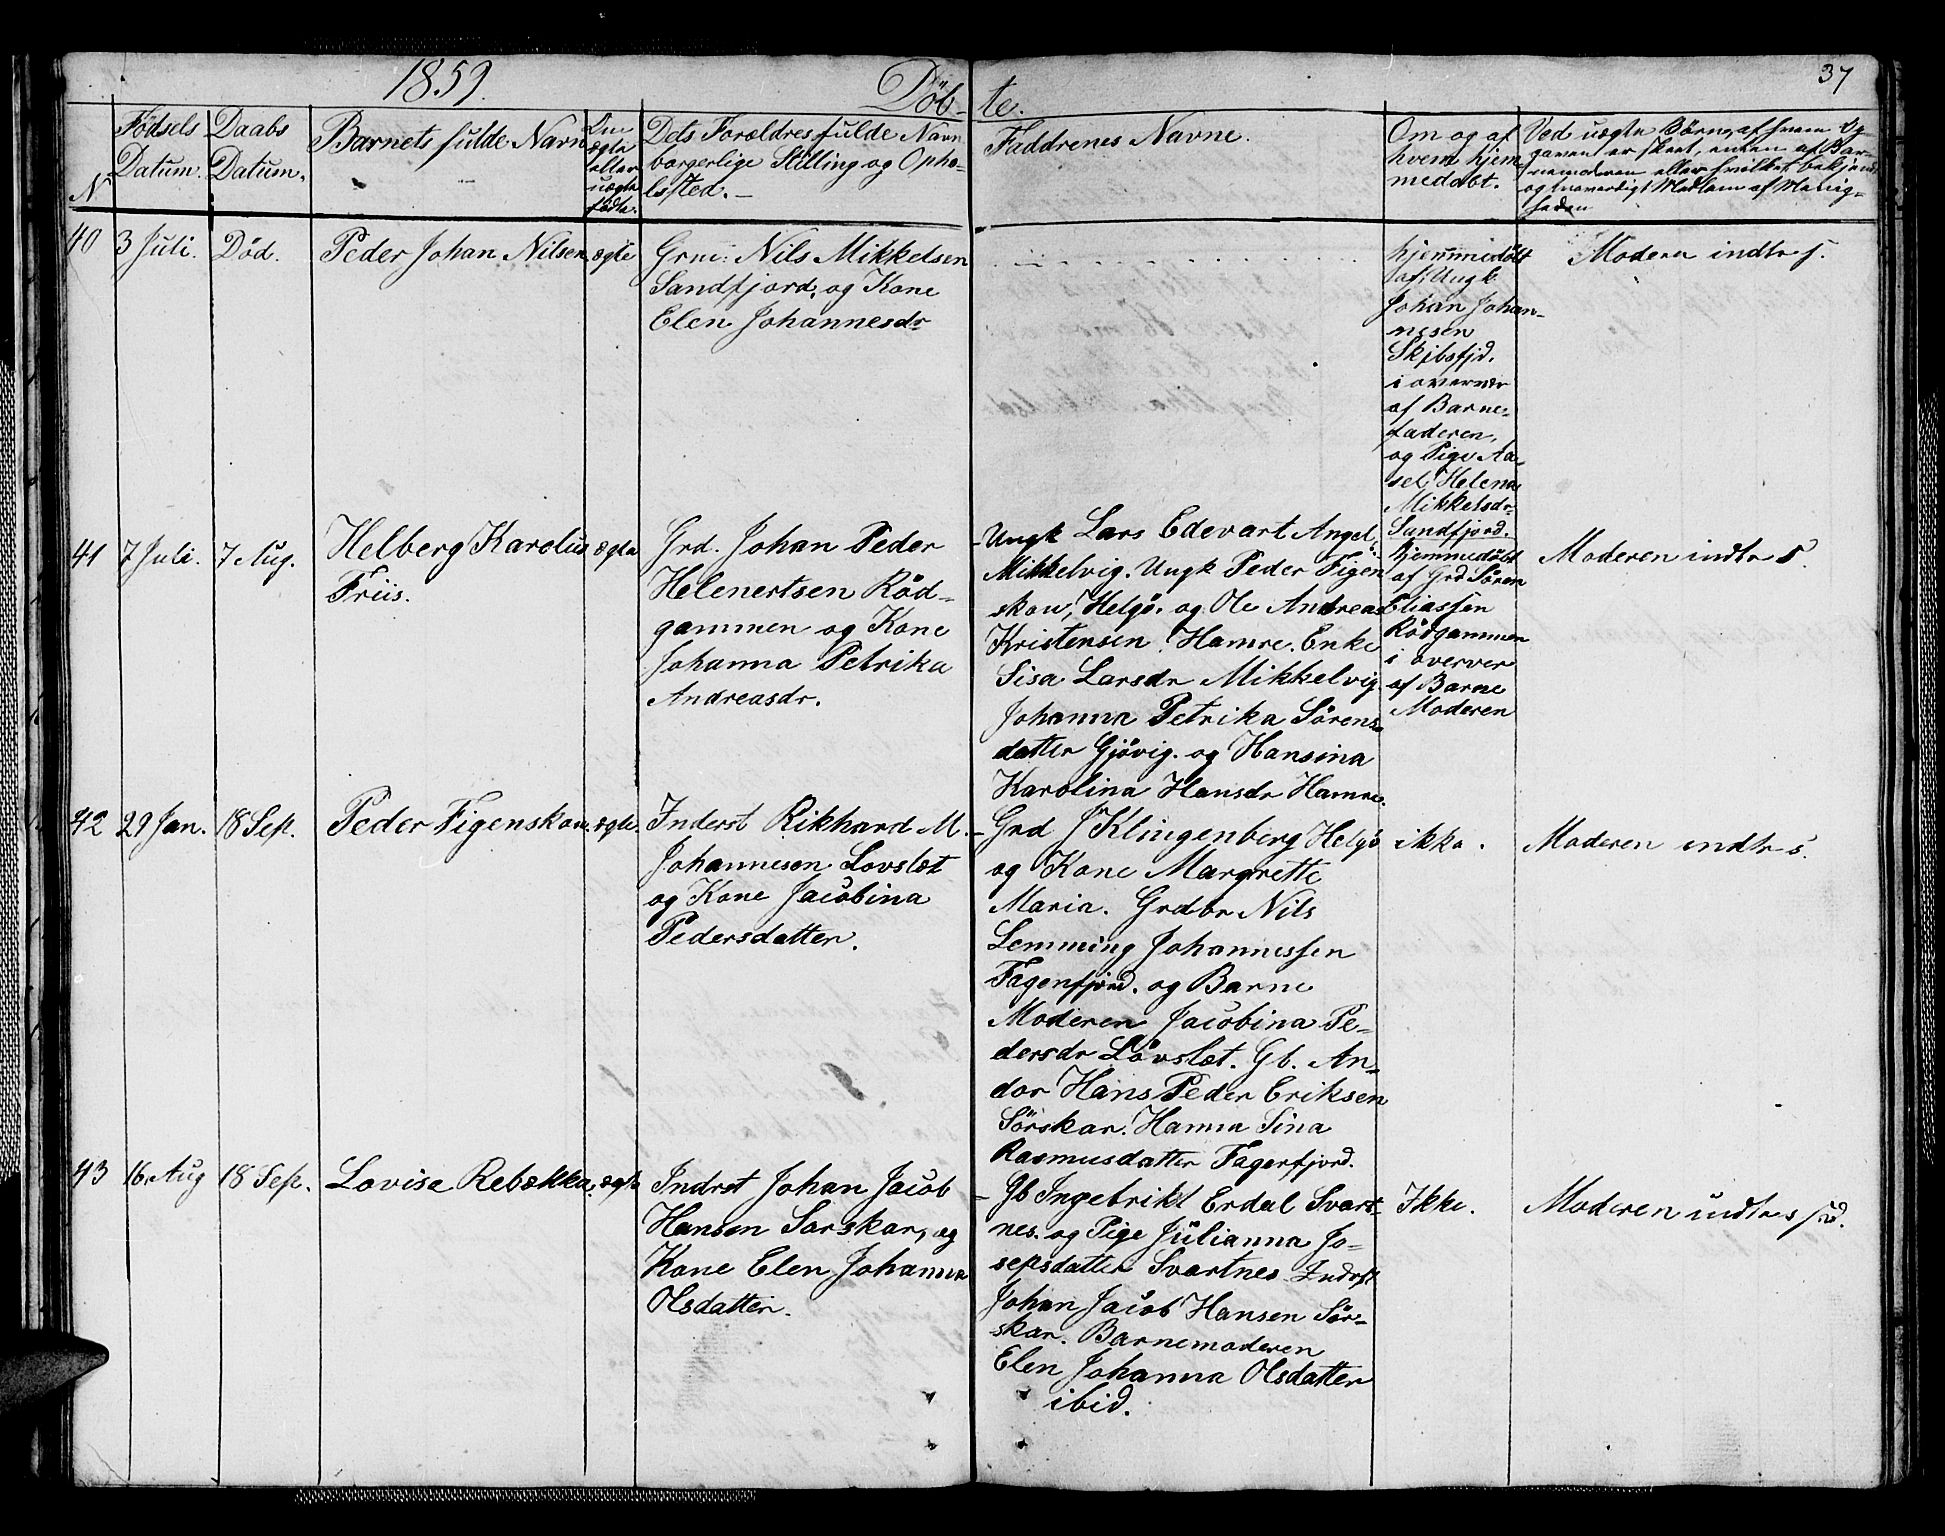 1859.
Döb-
te.
37
N
Fødsels
Datum.
Daabs
Datum.
Barnets fulde Navn
Om
ægte
eller
uægte
födte.
Dets Forældres fulde Navn
borgerlige Stilling og Opho-
lsted.
Faddrenes Navne.
Om og af
hvem hjem-
medøbt.
Ved uægte Børn, af hvem Op
gaven er skeet, enten af Bar-
nemoderen eller hvilket bekjend
og troværdigt Medlem af Menig-
heden
40
3 Juli.
Död.
Peder Johan Nilsen
ægte
Grm: Nils Mikkelsen
Sandfjord, og Kone
Elen Johannesdr
hjemmedöbt
af Ungk
Johan Johan-
nesen
Skibsfjd.
i overvær
af Barne-
faderen,
og Pige Aa-
sel Helena
Mikkelsdr
Sandfjord.
Moderen indtr s.
41
7 Juli.
7 Aug.
Helberg Karolus
Friis.
ægte
Grd. Johan Peder
Helenertsen Röd-
gammen og Kone
Johanna Petrika
Andreasdr.
Ungk Lars Edevart Angel,
Mikkelvig. Ungk Peder Figen
skou, Helgö. og Ole Andreas
Kristensen Hamre. Enke
Sisa Larsdr Mikkelvig.
Johanna Petrika Sörens-
datter Gjövig. og Hansina
Karolina Hansdr Hamre.
hjemmedöbt
af Grd Sören
Eliassen
Rödgammen
i overver
af Barne
Moderen
Moderen indtr s.
42
29 Jan.
18 Sep.
Peder Figenskou.
ægte.
Inderst Rikhard M.
Johannesen Lovslet
og Kone Jacobina
Pedersdatter.
Grd J Klingenberg Helgö
og Kone Margrette
Maria. Grdbr Nils
Lemming Johannessen
Fagerfjord. og Barne
Moderen Jacobina Pe-
dersdr Lövslet. Gb. An-
dor Hans Peder Eriksen
Sörskar. Hanna Sina
Rasmusdatter Fagerfjord.
ikke.
Moderen indtr s.
43
16 Aug
18 Sep.
Lovise Rebekka.
ægte
Indrst Johan Jacob
Hansen Sarskar, og
Kone Elen Johanna
Olsdatter.
Gb Ingebrikt Erdal Svart-
nes. og Pige Julianna Jo-
sepsdatter Svartnes Indrst
Johan Jacob Hansen Sör-
skar. Barnemoderen
Elen Johanna Olsdatter
ibid.
Ikke.
Moderen indtres